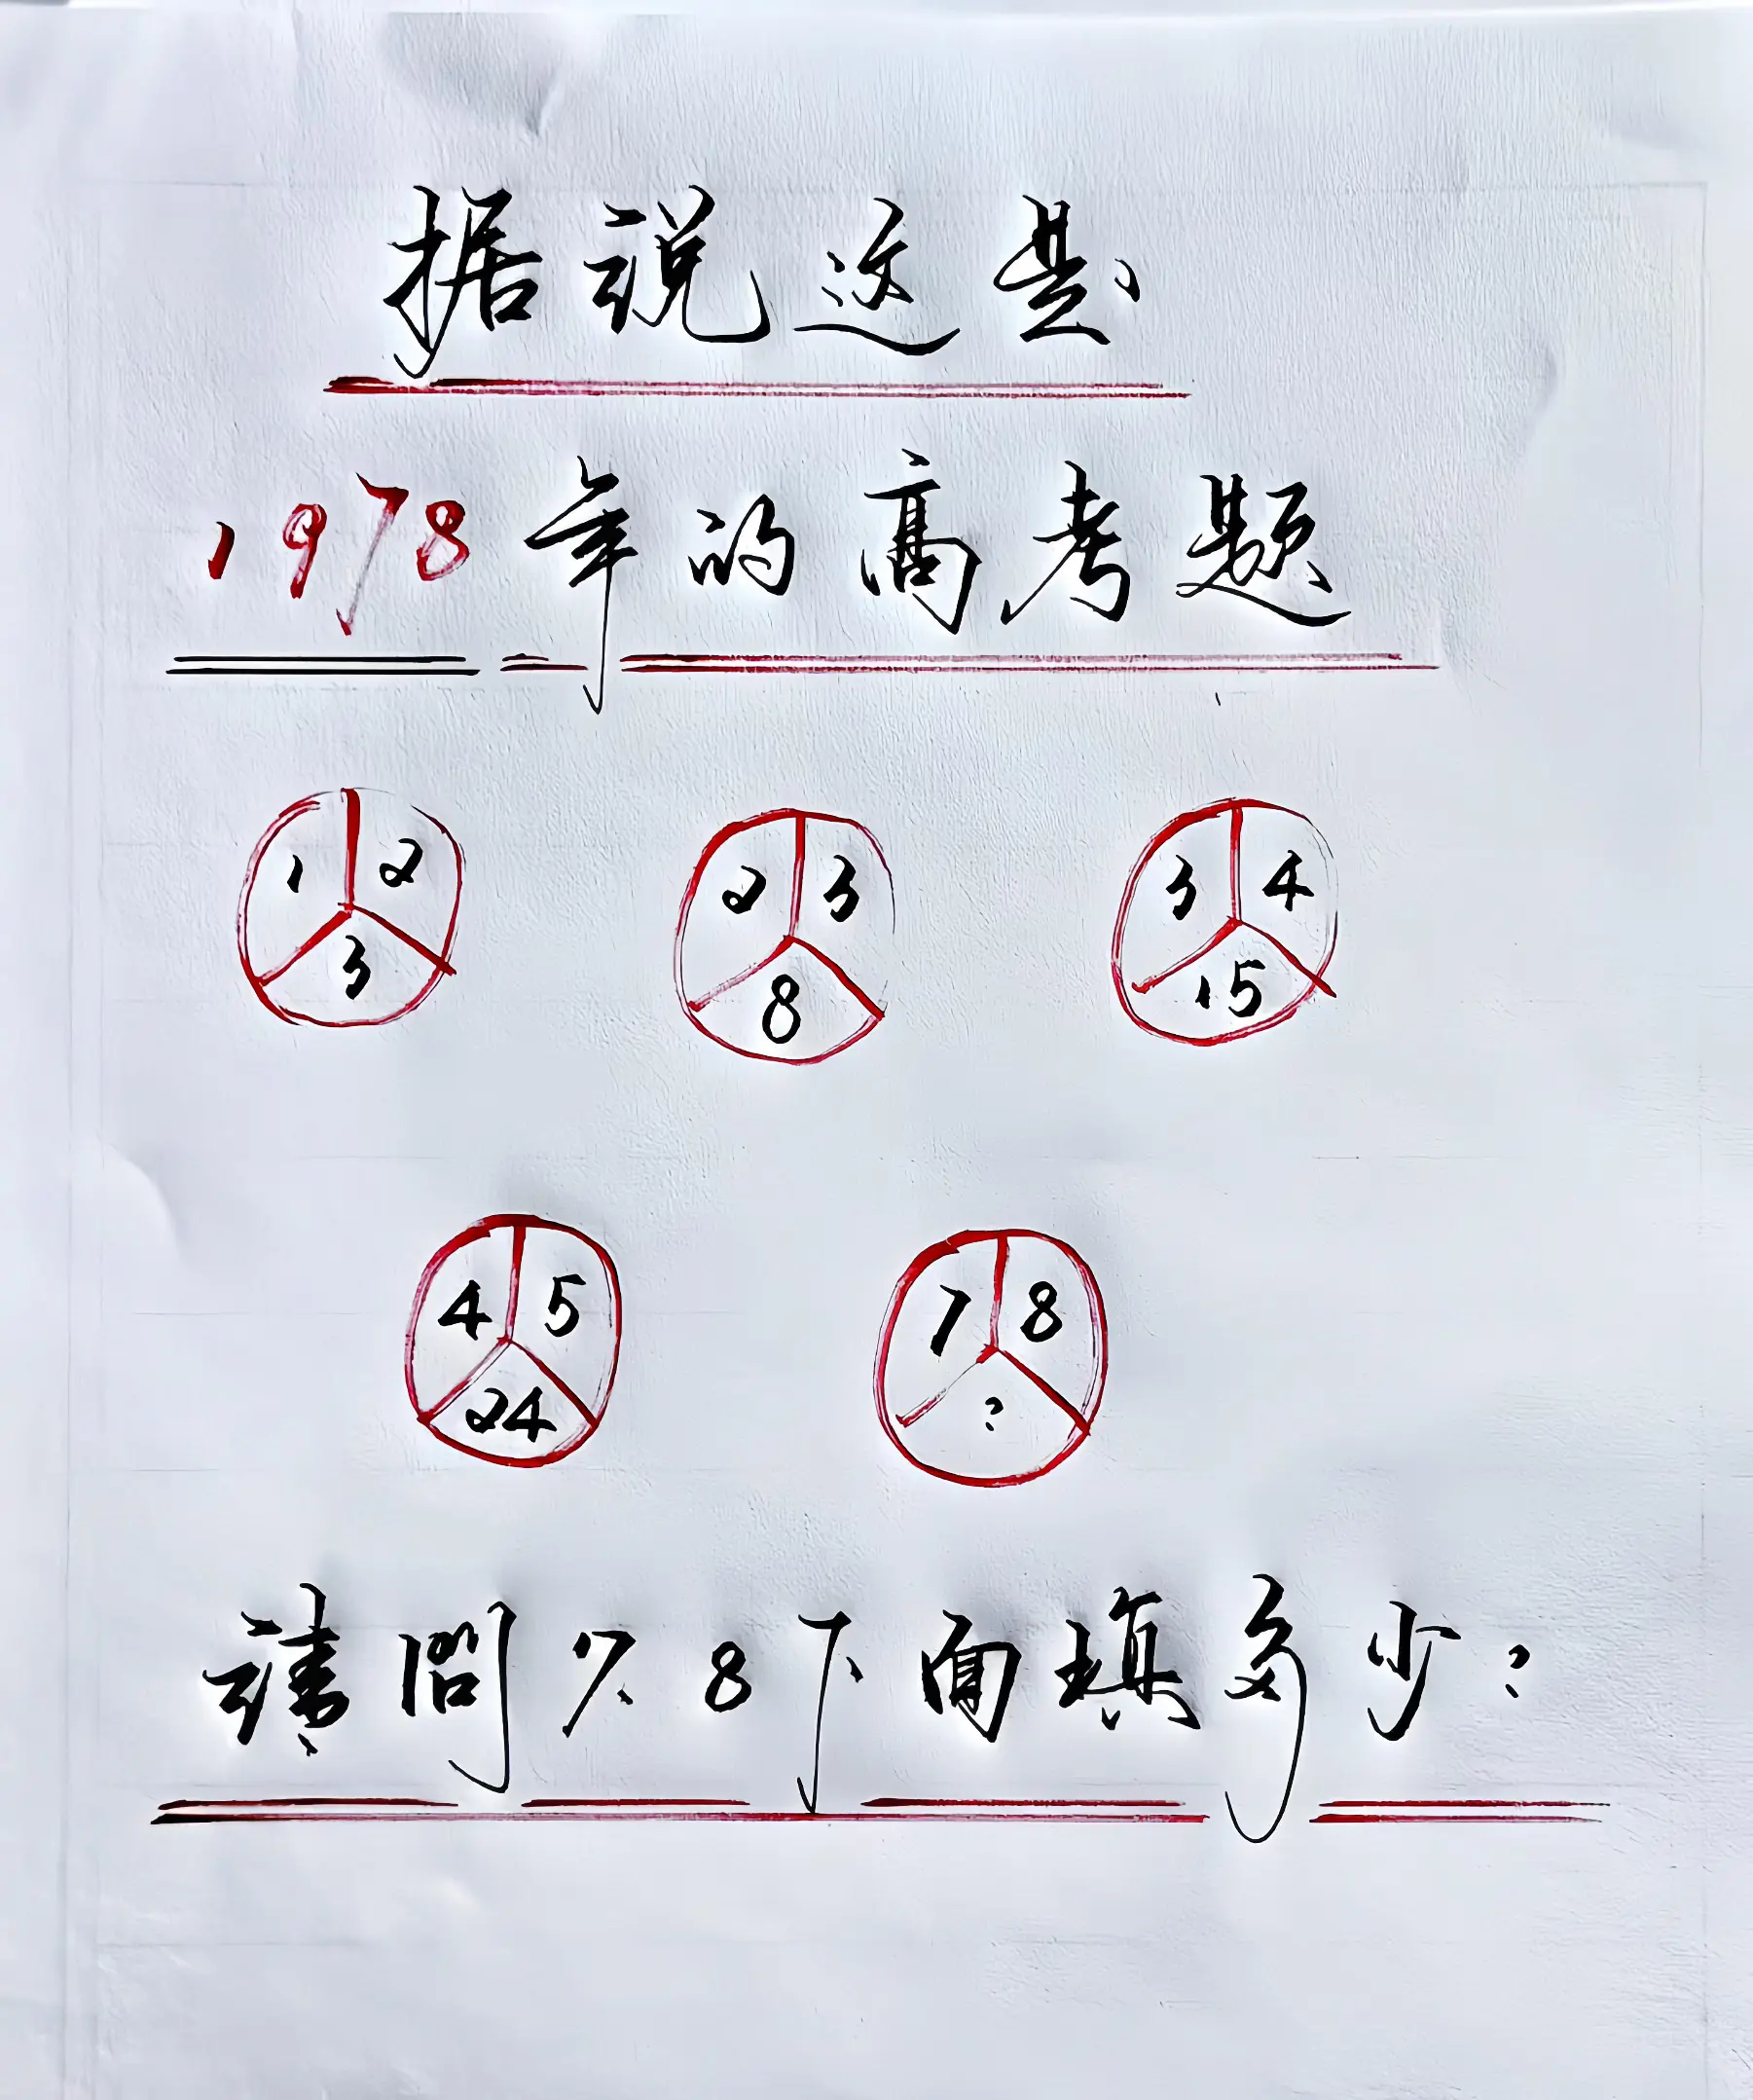 据说这是
1978年的高考题
1 2 3
2 3 8
3 4 15
4 5 24
7 8 ?
请問7.8下面填多少?